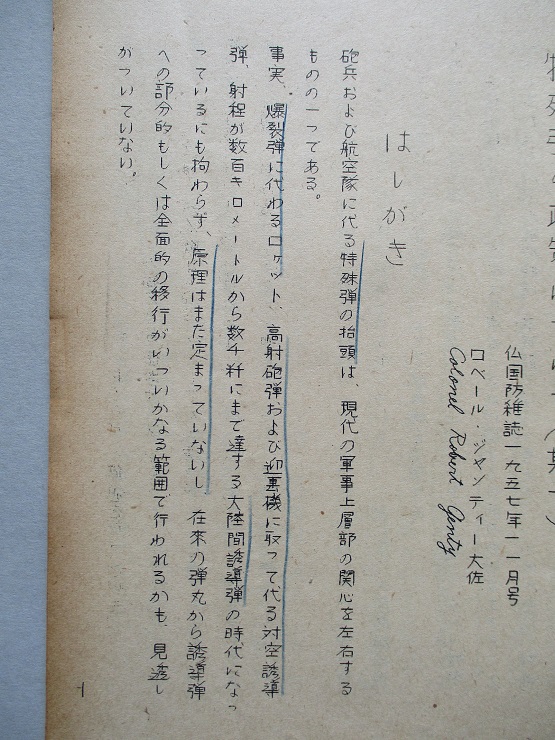 仏国防雑誌一九五七年一一月号
ロベール・ジャンティー大佐
Colonel Robert Genty
はしがき
砲兵および航空隊に代る特殊弾の抬頭は、現代の軍事上層部の関心を左右する
ものの一つである。
事実、爆裂弾に代わるロケット、高射砲弾および迎撃機に取って代る対空誘導
弾、射程が数百キロメートルから数千粁にまで達する大陸間誘導弾の時代になっ
っているにも拘わらず、原理はまた定まっていないし 在来の弾丸から誘導弾
への部分的もしくは全面的の移行がいついかなる範囲で行われるかも、見透し
がついていない。
1